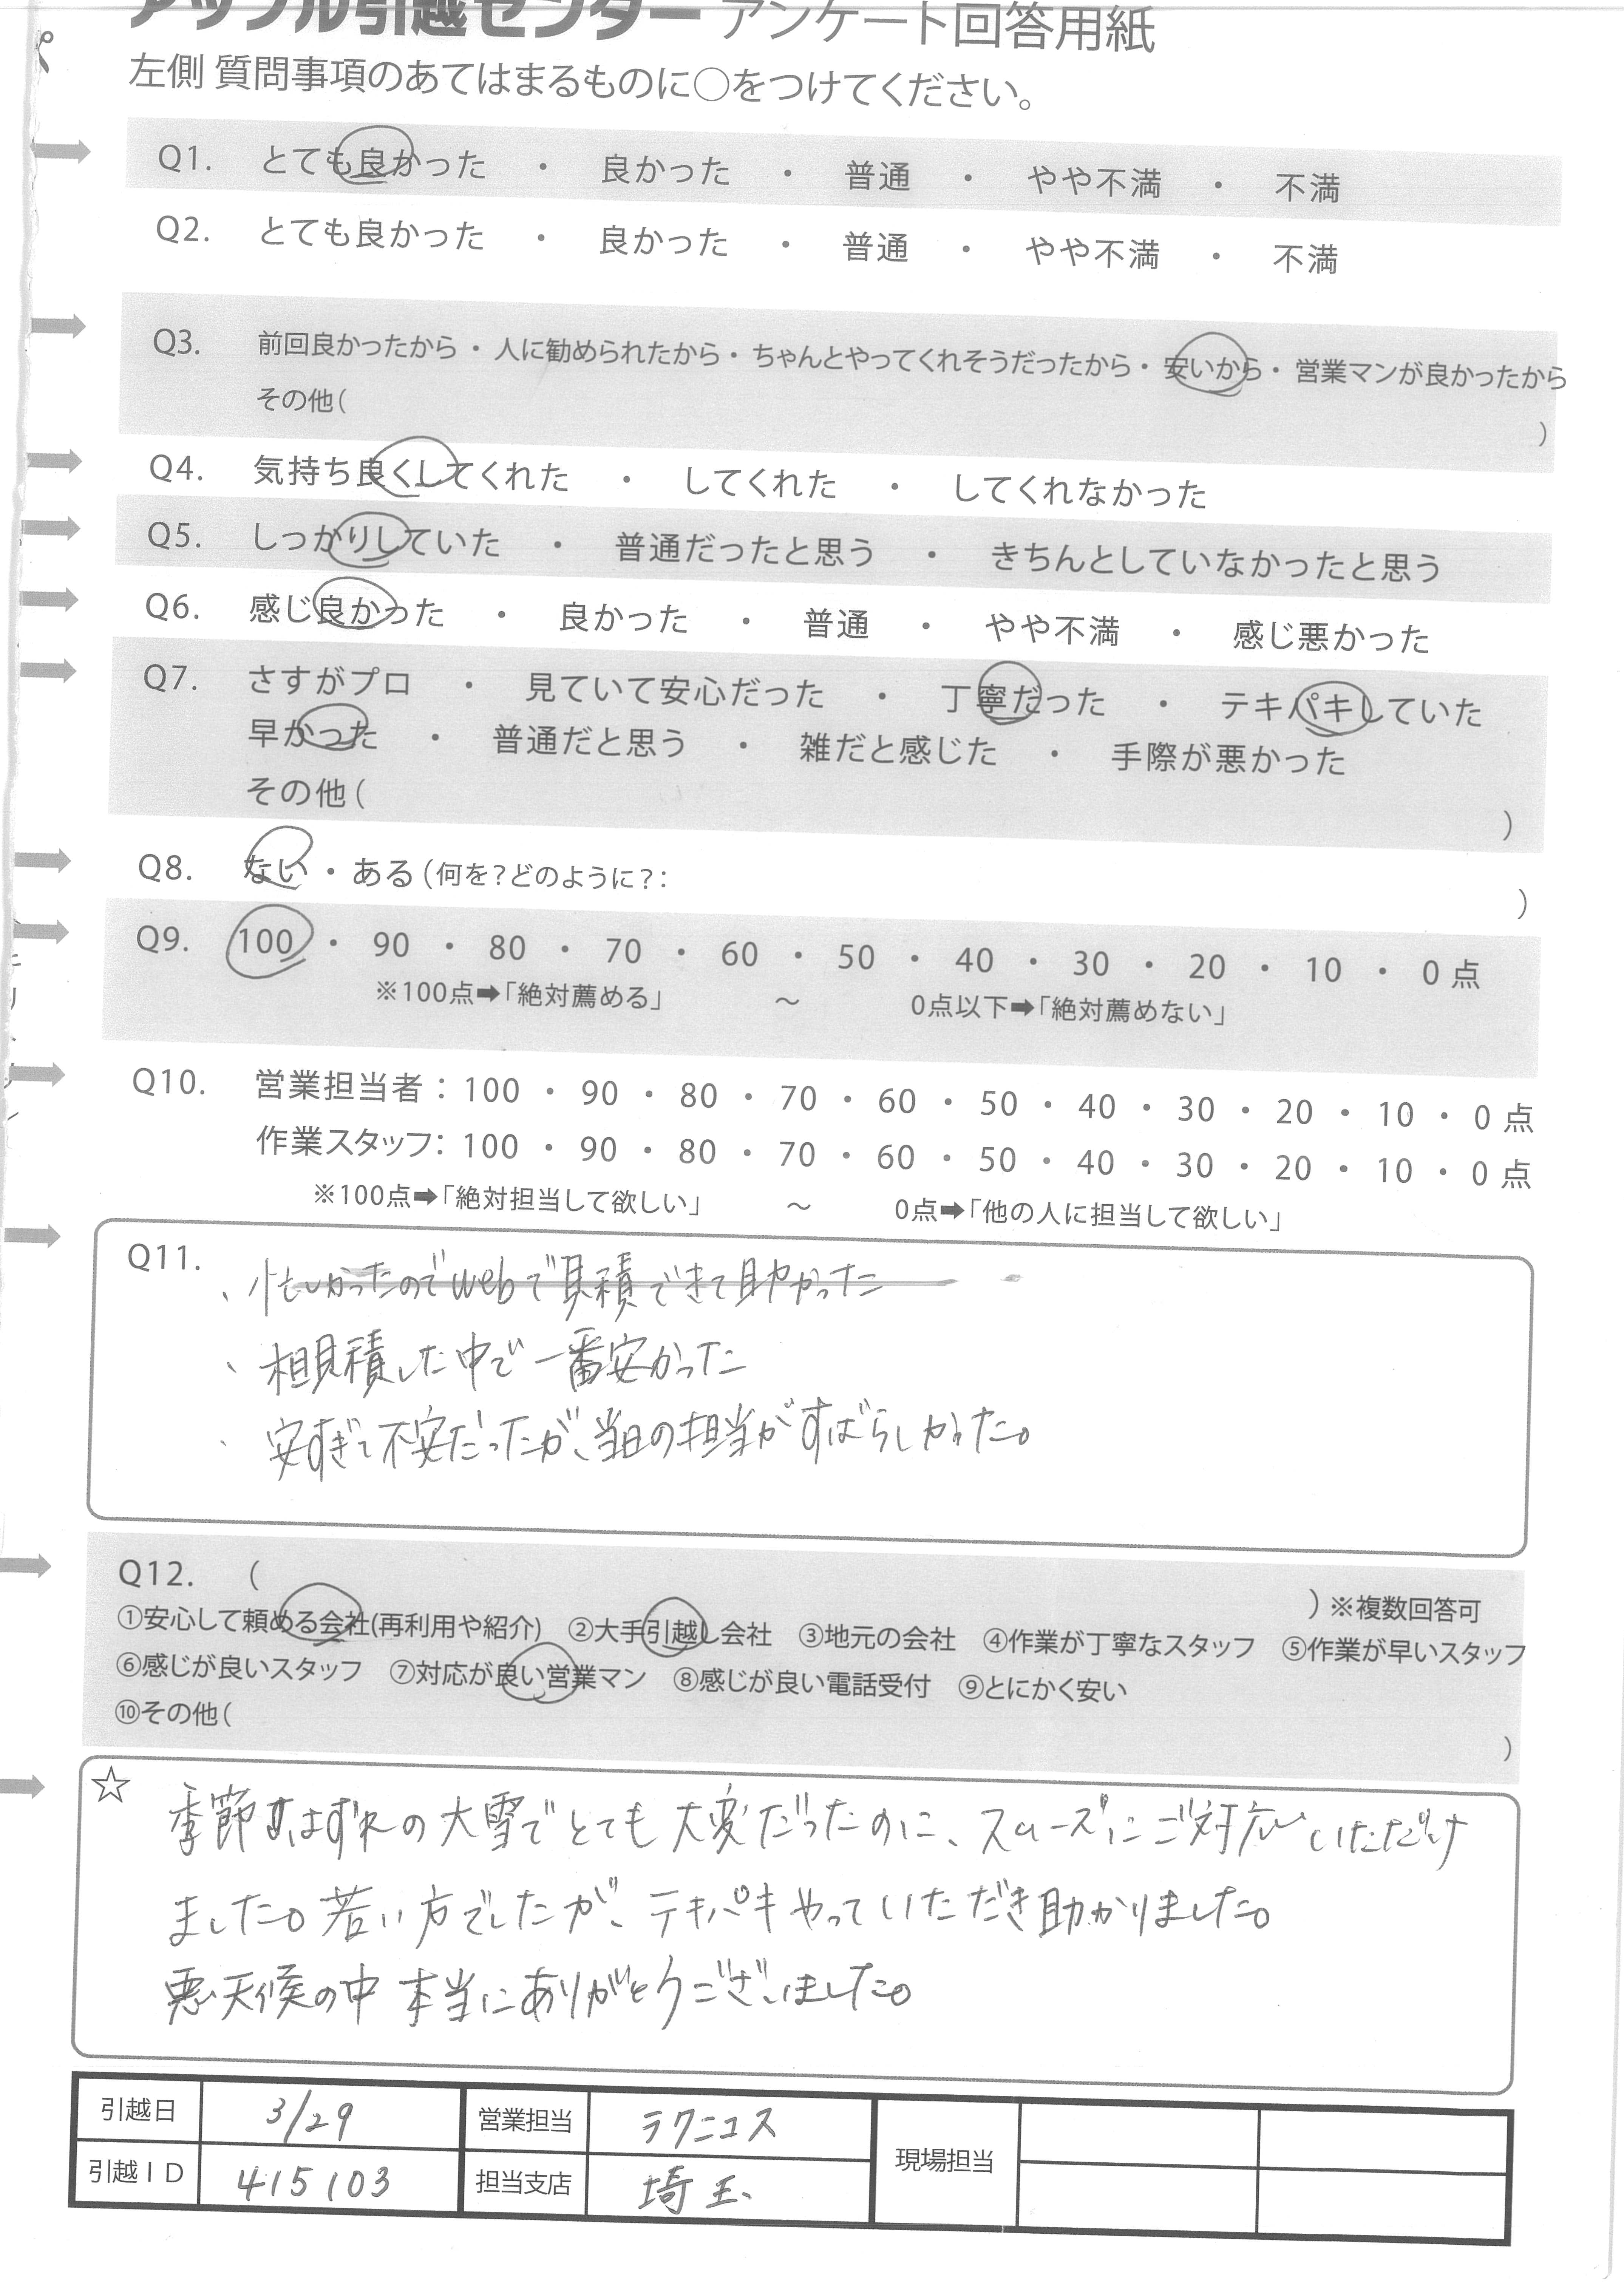 アップル引越センター アンケート回答用紙
左側 質問事項のあてはまるものに○をつけてください。
Q1. とても良かった ・ 良かった ・ 普通 ・ やや不満 ・ 不満
Q2. とても良かった ・ 良かった ・ 普通 ・ やや不満 ・ 不満
Q3. 前回良かったから ・ 人に勧められたから ・ ちゃんとやってくれそうだったから ・ 安いから ・ 営業マンが良かったから
その他( )
Q4. 気持ち良くしてくれた ・ してくれた ・ してくれなかった
Q5. しっかりしていた ・ 普通だったと思う ・ きちんとしていなかったと思う
Q6. 感じ良かった ・ 良かった ・ 普通 ・ やや不満 ・ 感じ悪かった
Q7. さすがプロ ・ 見ていて安心だった ・ 丁寧だった ・ テキパキしていた
早かった ・ 普通だと思う ・ 雑だと感じた ・ 手際が悪かった
その他( )
Q8. ない ・ ある(何を?どのように?: )
Q9. 100 ・ 90 ・ 80 ・ 70 ・ 60 ・ 50 ・ 40 ・ 30 ・ 20 ・ 10 ・ 0 点
※100点➡「絶対薦める」 ~ 0点以下➡「絶対薦めない」
Q10. 営業担当者:100 ・ 90 ・ 80 ・ 70 ・ 60 ・ 50 ・ 40 ・ 30 ・ 20 ・ 10 ・ 0 点
作業スタッフ:100 ・ 90 ・ 80 ・ 70 ・ 60 ・ 50 ・ 40 ・ 30 ・ 20 ・ 10 ・ 0 点
※100点➡「絶対担当して欲しい」 ~ 0点➡「他の人に担当して欲しい」
Q11. 、忙しかったのでwebで見積できて助かった
、相見積した中で一番安かった
、安すぎて不安だったが、当日の担当がすばらしかった。
Q12. ( ) ※複数回答可
①安心して頼める会社(再利用や紹介) ②大手引越し会社 ③地元の会社 ④作業が丁寧なスタッフ ⑤作業が早いスタッフ
⑥感じが良いスタッフ ⑦対応が良い営業マン ⑧感じが良い電話受付 ⑨とにかく安い
⑩その他( )
☆ 季節はずれの大雪でとても大変だったのに、スムーズにご対応いただけ
ました。若い方でしたが、テキパキやっていただき助かりました。
悪天候の中 本当にありがとうございました。
引越日 3/29 営業担当 ラクニコス 現場担当
引越ID 415103 担当支店 埼玉